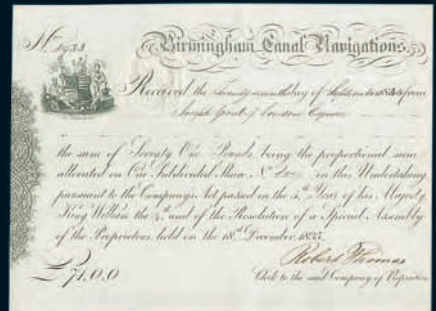 No. 1938
Birmingham Canal Navigations.
Received the Twenty ninth day of September 1844 from
Joseph Grout of London Esquire
the sum of Seventy One Pounds, being the proportional sum
allocated on One Subdivided Share, No. in this Undertaking
pursuant to the Company's Act passed in the 5th Year of his Majesty
King William the 4th and of the Resolution of a Special Assembly
of the Proprietors held on the 18th December, 1835.
£71.0.0
Robert Thomas
Clerk to the said Company of Proprietors